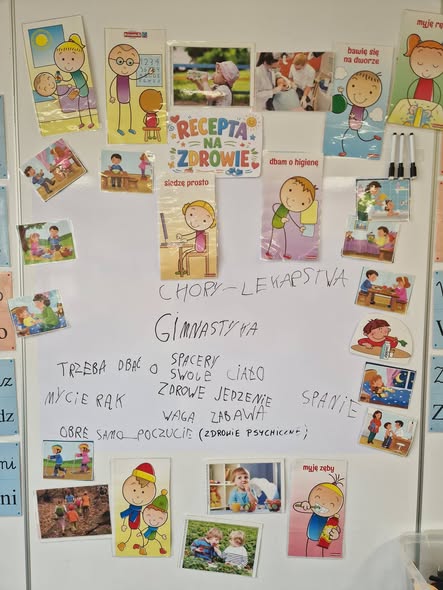 bawię się
na dworze
myję rę
RECEPTA
NA
ZDROWIE
siedzę prosto
dbam o higienę
CHORY – LEKARSTWA
GIMNASTYKA
SPACERY
TRZEBA DBAĆ O SWOJE CIAŁO
MYCIE RĄK ZDROWE JEDZENIE SPANIE
WAGA ZABAWA
OBRE SAMO_POCZUCIE (ZDROWIE PSYCHICZNE)
myję zęby